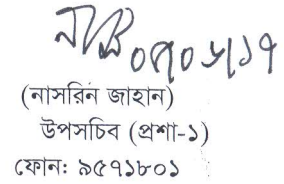 ০৫/০৬/১৭
(নাসরিন জাহান)
উপসচিব (প্রশা-১)
ফোন: ৯৫৭১৮০১